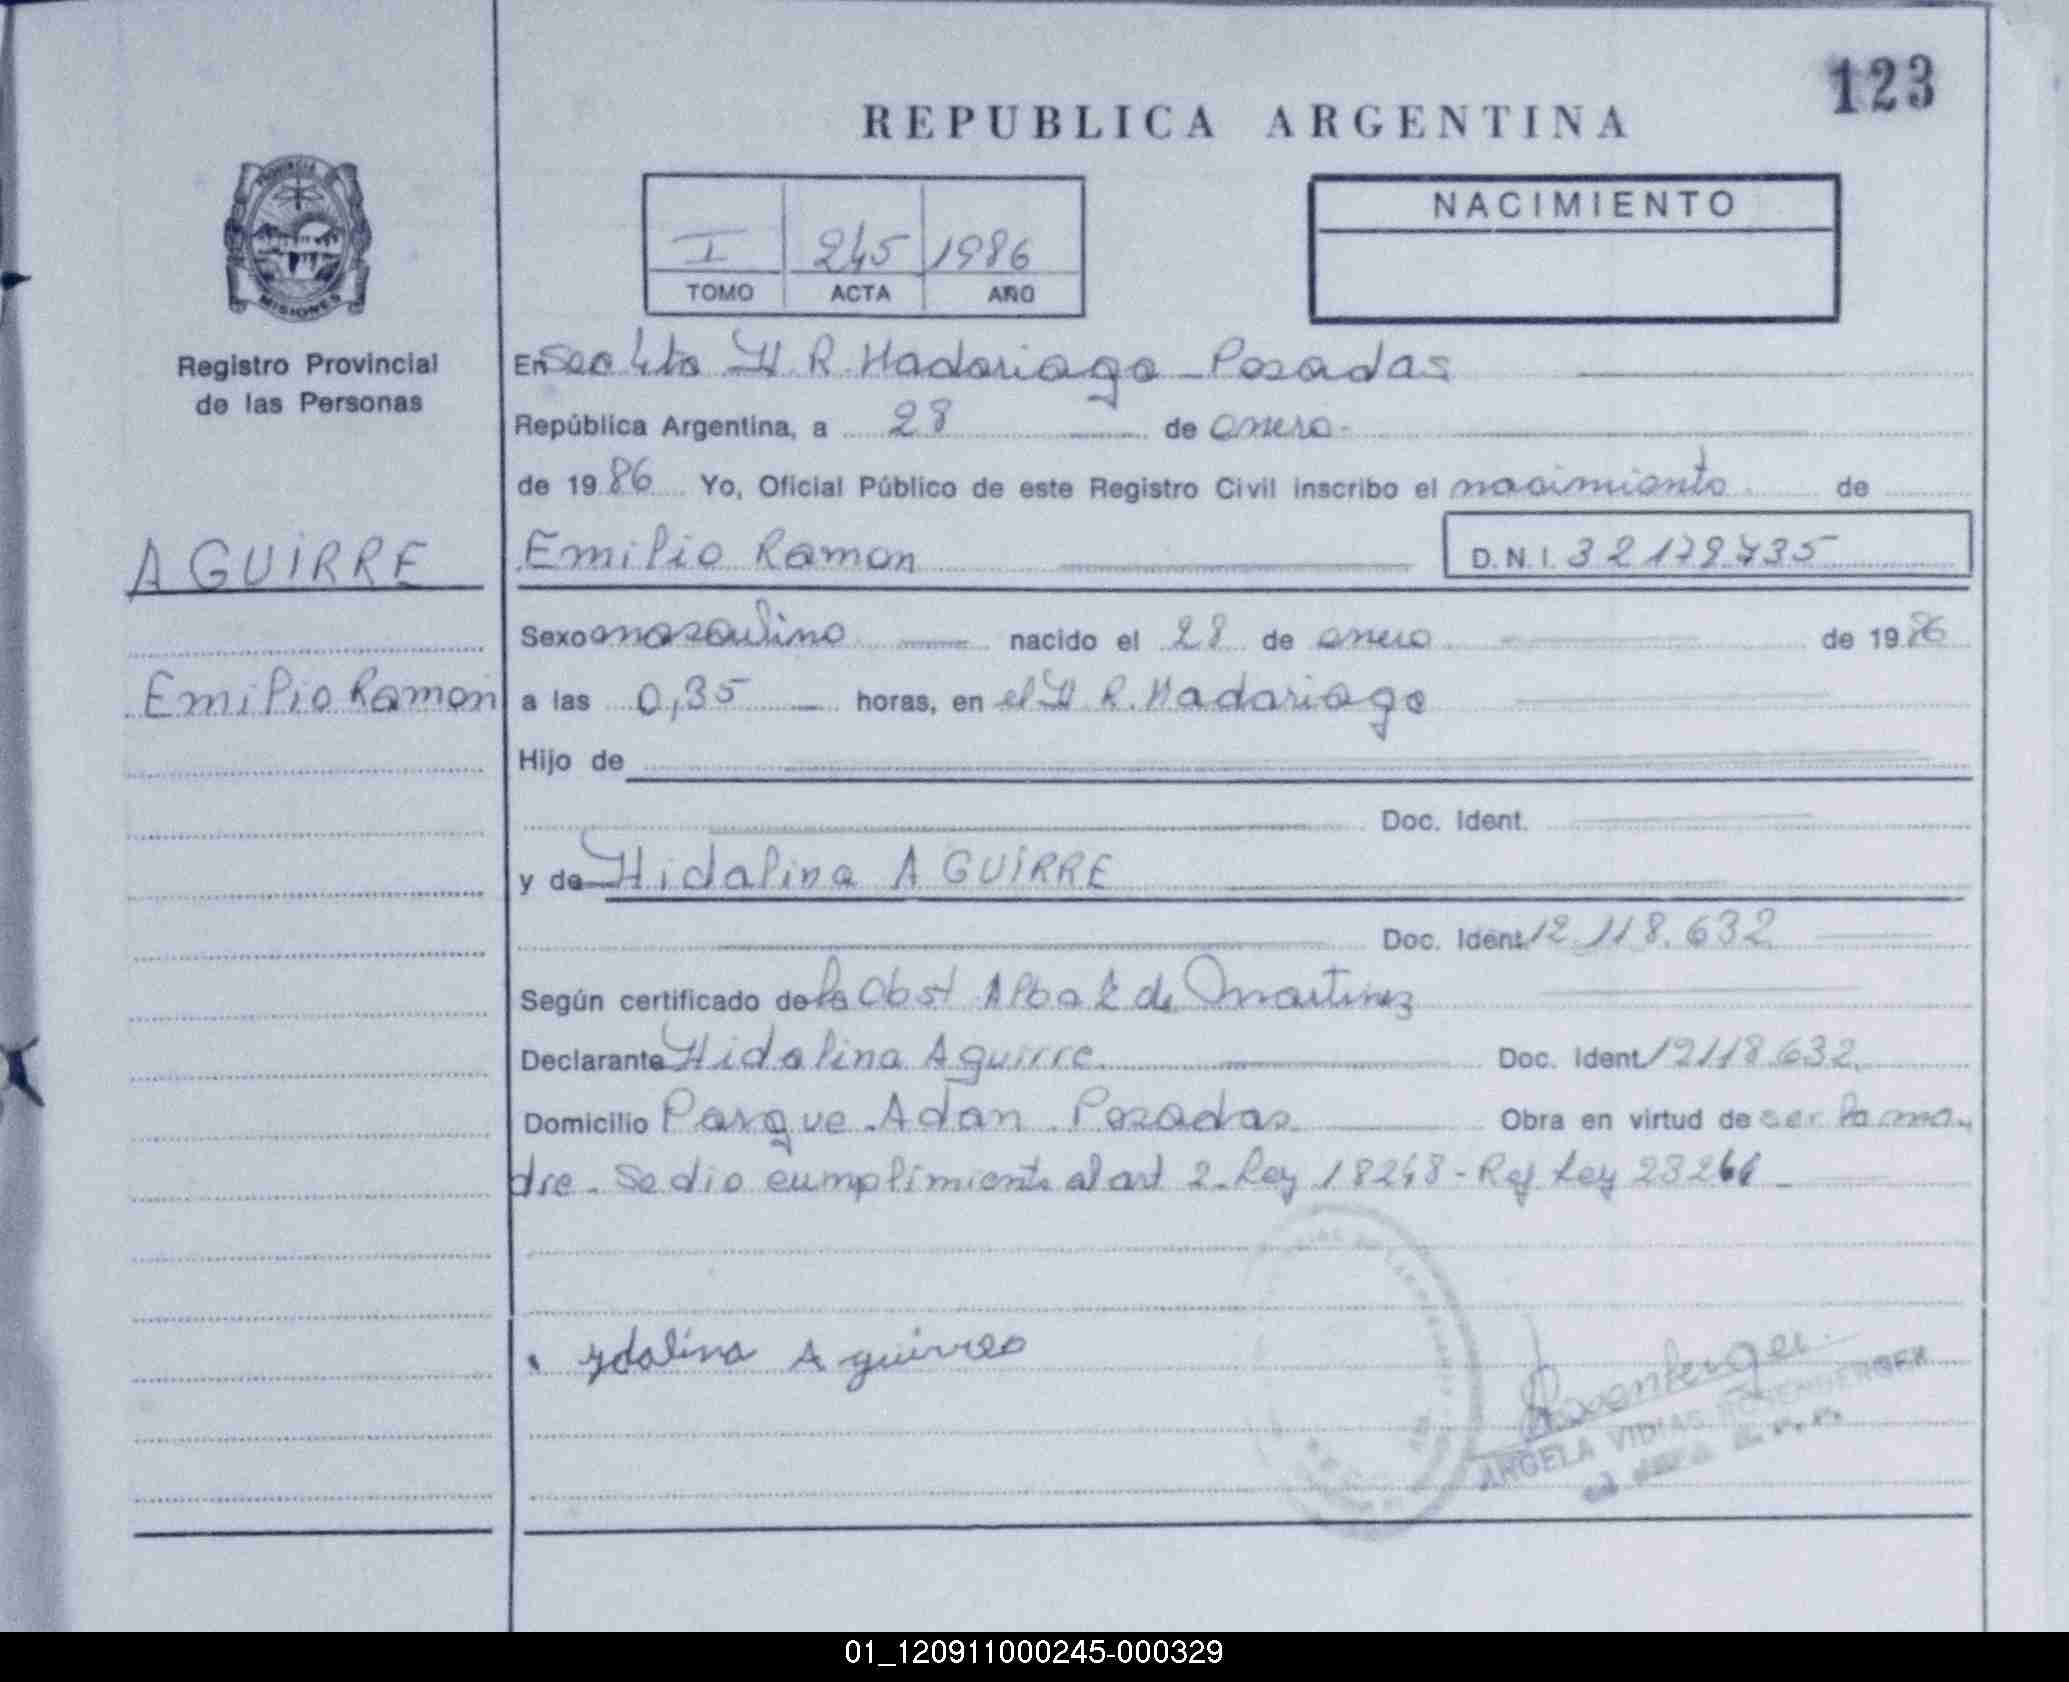 123
REPUBLICA ARGENTINA
PROVINCIA
MISIONES
NACIMIENTO
I 245 1986
TOMO ACTA AÑO
Registro Provincial
de las Personas
En Sec 4ta H R. Madariaga - Posadas
República Argentina, a 28 de enero
de 1986 Yo, Oficial Público de este Registro Civil inscribo el nacimiento de
AGUIRRE
Emilio Ramon D.N.I. 32179735
Sexo masculino nacido el 28 de enero de 1986
Emilio Ramon
a las 0,35 horas, en el H R. Madariaga
Hijo de
Doc. Ident.
y de Hidalina AGUIRRE
Doc. Ident. 12.118.632
Según certificado de la Obst Alba de Martinez
Declarante Hidalina Aguirre Doc. Ident. 12118.632
Domicilio Parque Adan Posadas Obra en virtud de ser la ma-
dre. Se dio cumplimiento al art 2 Ley 18248 - Ley
ydalina Aguirreo
Rosenberger
ANGELA ROSENBERGER
01_120911000245-000329